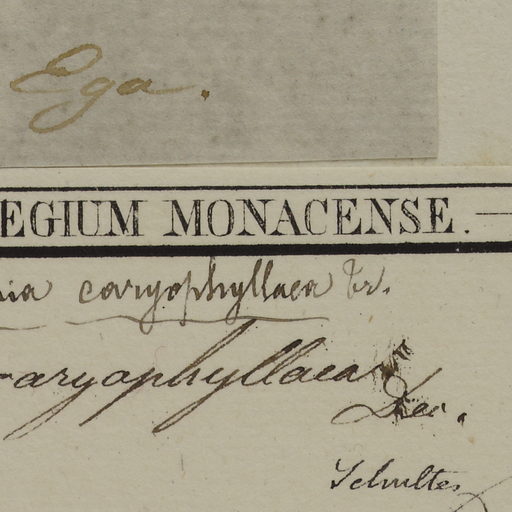 Ega.
EGIUM MONACENSE. —
nia caryophyllaea Br.
caryophyllaea
Schultes